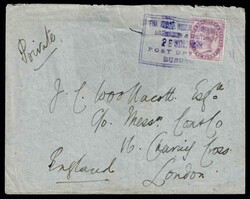 Private
POST OFFICE
J. C. Woollacott Esqre
c/o Messrs Cox & Co
16 Charing Cross
London.
England